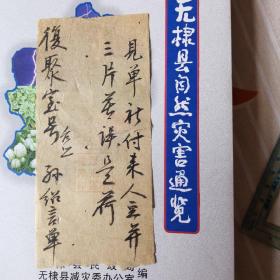 无棣县自然灾害通览
見单祈付来人主并
三片莫误是荷
復聚宝号 台上
孙绍言单
无棣县减灾委办公室 编